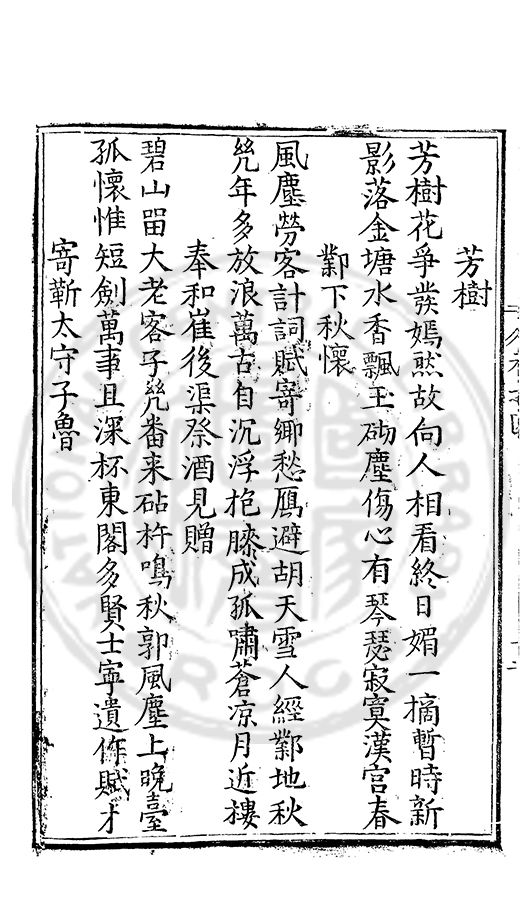 芳樹
芳樹花爭發嫣然故向人相看終日媚一摘暫時新
影落金塘水香飄玉砌塵傷心有琴瑟寂寞漢宮春
鄴下秋懷
風塵勞客計詞賦寄鄉愁鴈避胡天雪人經鄴地秋
幾年多放浪萬古自沉浮抱膝成孤嘯蒼凉月近樓
奉和崔後渠祭酒見贈
碧山留大老客子幾番来砧杵鳴秋郭風塵上晚臺
孤懷惟短劍萬事且深杯東閣多賢士寧遺作賦才
寄靳太守子魯